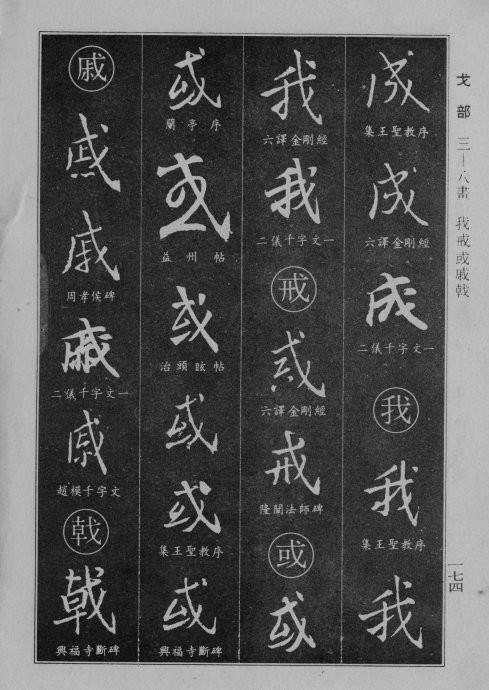 戈部 三—八畫 我戒或戚戟
一七四
成
集王聖教序
成
六譯金剛經
成
二儀千字文一
我
我
集王聖教序
我
我
六譯金剛經
我
二儀千字文一
戒
戒
六譯金剛經
戒
隆闡法師碑
或
或
或
蘭亭序
或
益州帖
或
治頭眩帖
或
或
集王聖教序
或
興福寺斷碑
戚
戚
戚
周孝侯碑
戚
二儀千字文一
戚
趙模千字文
戟
戟
興福寺斷碑